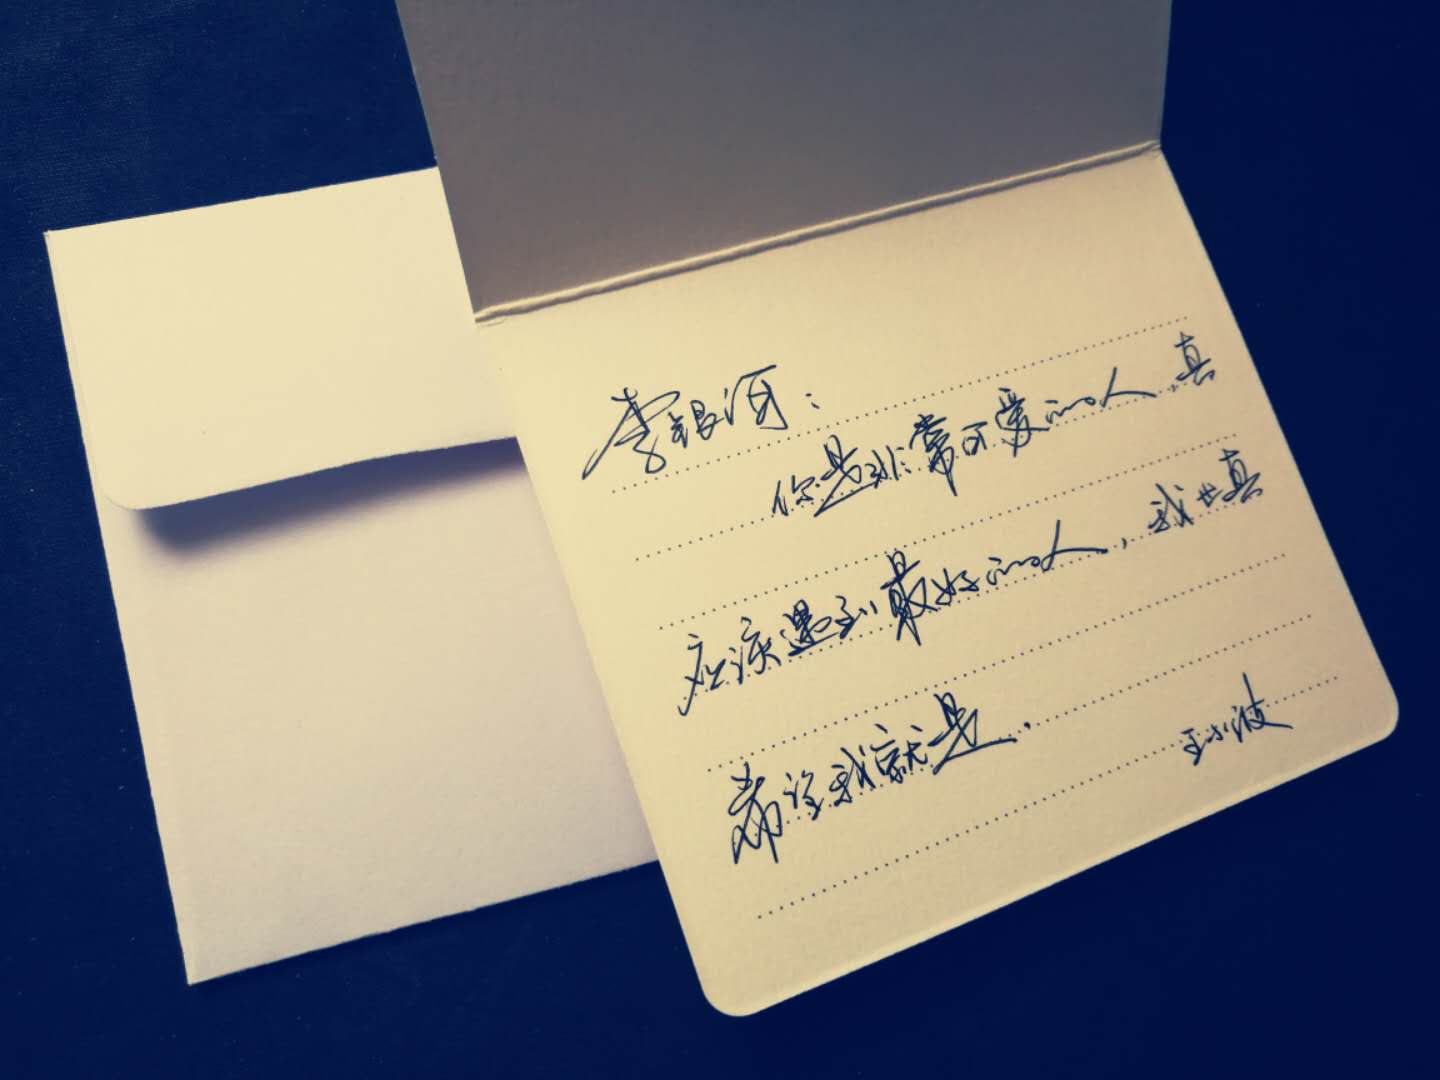 李银河：
你是非常可爱的人，真
应该遇到最好的人，我也真
希望我就是．
王小波